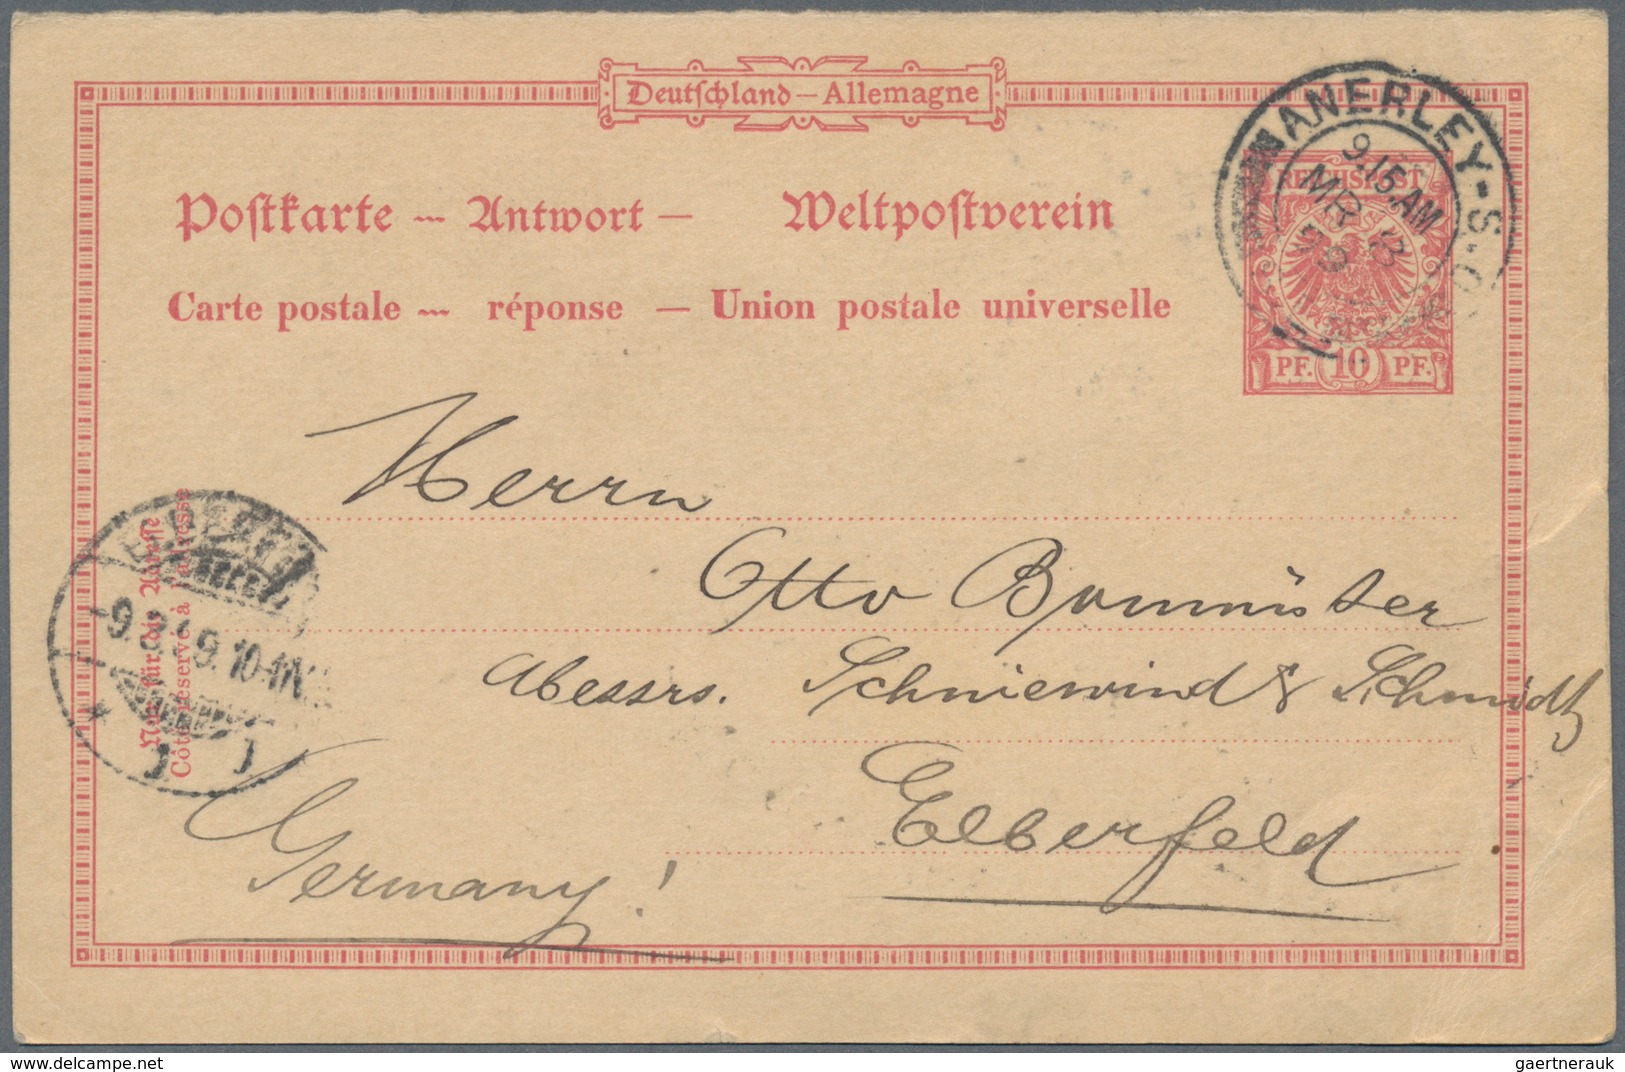 Deutschland – Allemagne
Postkarte — Antwort — Weltpostverein
Carte postale — réponse — Union postale universelle
ANERLEY - S.
9.15 AM
MR 8
REICHSPOST
PF. 10 PF.
Herrn
Otto Bommüster
Messrs. Schniewind & Schmidt
Elberfeld
Germany!
Nur für die Adresse
Côté réservé à l'adresse
-9. 3. 9. 10-11N.
www.delcampe.net
gaertnerauk